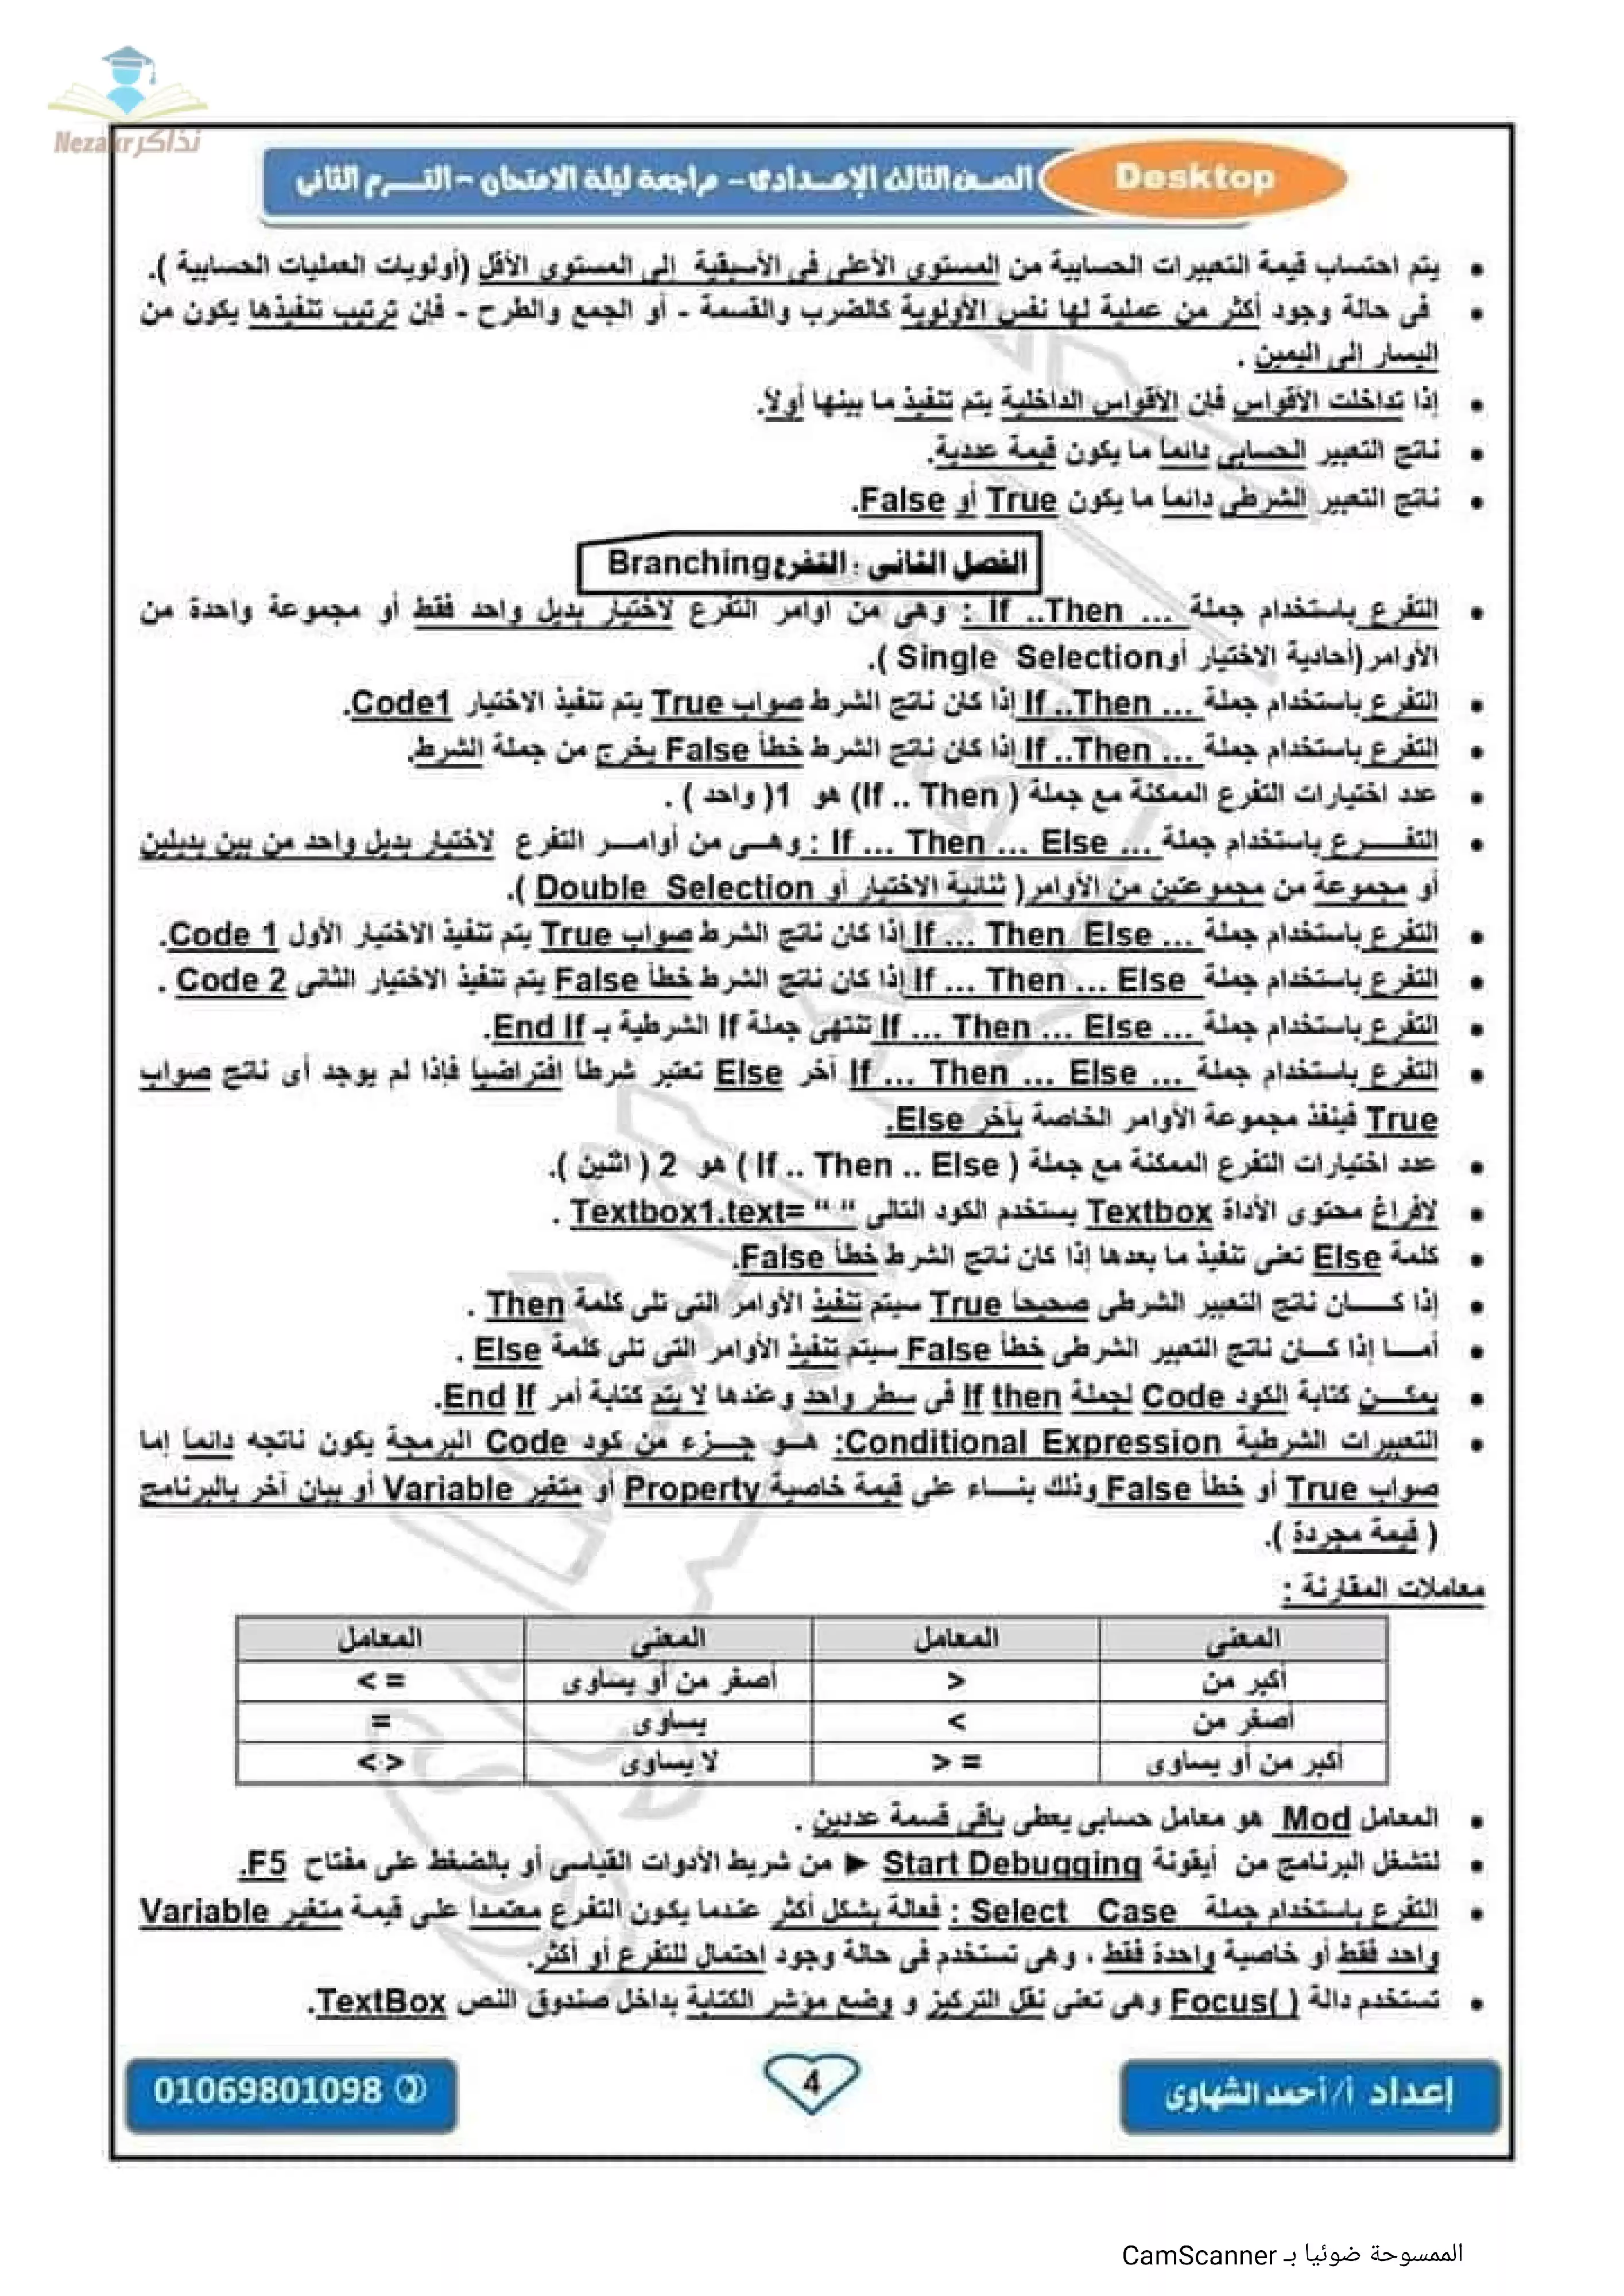 نذاكر Nezakr
Desktop
الصف الثالث الإعدادى - مراجعة ليلة الامتحان - الترم الثانى
• يتم احتساب قيمة التعبيرات الحسابية من المستوى الأعلى فى الأسبقية إلى المستوى الأقل (أولويات العمليات الحسابية ).
• فى حالة وجود أكثر من عملية لها نفس الأولوية كالضرب والقسمة - أو الجمع والطرح - فإن ترتيب تنفيذها يكون من
اليسار إلى اليمين .
• إذا تداخلت الأقواس فإن الأقواس الداخلية يتم تنفيذ ما بينها أولاً.
• ناتج التعبير الحسابى دائماً ما يكون قيمة عددية.
• ناتج التعبير الشرطى دائماً ما يكون True أو False.
الفصل الثانى : التفرع Branching
• التفرع باستخدام جملة ... If ..Then : وهى من أوامر التفرع لاختيار بديل واحد فقط أو مجموعة واحدة من
الأوامر(أحادية الاختيار أو Single Selection ).
• التفرع باستخدام جملة ... If ..Then إذا كان ناتج الشرط صواب True يتم تنفيذ الاختيار Code1.
• التفرع باستخدام جملة ... If ..Then إذا كان ناتج الشرط خطأ False يخرج من جملة الشرط.
• عدد اختيارات التفرع الممكنة مع جملة ( If .. Then) هو 1( واحد ) .
• التفـــرع باستخدام جملة ... If ... Then ... Else : وهــى من أوامــر التفرع لاختيار بديل واحد من بين بديلين
أو مجموعة من مجموعتين من الأوامر( ثنائية الاختيار أو Double Selection ).
• التفرع باستخدام جملة ... If ... Then Else إذا كان ناتج الشرط صواب True يتم تنفيذ الاختيار الأول Code 1.
• التفرع باستخدام جملة If ... Then ... Else إذا كان ناتج الشرط خطأ False يتم تنفيذ الاختيار الثانى Code 2 .
• التفرع باستخدام جملة ... If ... Then ... Else تنتهى جملة If الشرطية بـ End If.
• التفرع باستخدام جملة ... If ... Then ... Else آخر Else تعتبر شرطاً افتراضياً فإذا لم يوجد أى ناتج صواب
True فينفذ مجموعة الأوامر الخاصة بآخر Else.
• عدد اختيارات التفرع الممكنة مع جملة ( If .. Then .. Else ) هو 2 ( اثنين ).
• لافراغ محتوى الأداة Textbox يستخدم الكود التالى Textbox1.text= “ “ .
• كلمة Else تعنى تنفيذ ما بعدها إذا كان ناتج الشرط خطأ False.
• إذا كـــان ناتج التعبير الشرطى صحيحاً True سيتم تنفيذ الأوامر التى تلى كلمة Then .
• أمــا إذا كــان ناتج التعبير الشرطى خطأ False سيتم تنفيذ الأوامر التى تلى كلمة Else .
• يمكــن كتابة الكود Code لجملة If then فى سطر واحد وعندها لا يتم كتابة أمر End If.
• التعبيرات الشرطية Conditional Expression: هــو جــزء من كود Code البرمجة يكون ناتجه دائماً إما
صواب True أو خطأ False وذلك بنــاء على قيمة خاصية Property أو متغير Variable أو بيان آخر بالبرنامج
( قيمة مجردة ).
معاملات المقارنة :
المعنى المعامل المعنى المعامل
أكبر من > أصغر من أو يساوى < =
أصغر من < يساوى =
أكبر من أو يساوى > = لا يساوى < >
• المعامل Mod هو معامل حسابى يعطى باقى قسمة عددين .
• لتشغل البرنامج من أيقونة Start Debugging ► من شريط الأدوات القياسى أو بالضغط على مفتاح F5.
• التفرع باستخدام جملة Select Case : فعالة بشكل أكثر عندما يكون التفرع معتمداً على قيمة متغير Variable
واحد فقط أو خاصية واحدة فقط ، وهى تستخدم فى حالة وجود احتمال للتفرع أو أكثر.
• تستخدم دالة Focus( ) وهى تعنى نقل التركيز و وضع مؤشر الكتابة بداخل صندوق النص TextBox.
إعداد أ/ أحمد الشهاوى
4
01069801098
الممسوحة ضوئيا بـ CamScanner